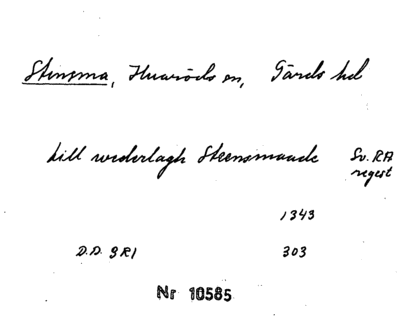 Stensma, Huaröds sn, Gärds hd
till wederlagh Steensmaade Sv. RA
regest
1343
D.D. 3R1 303
Nr 10585